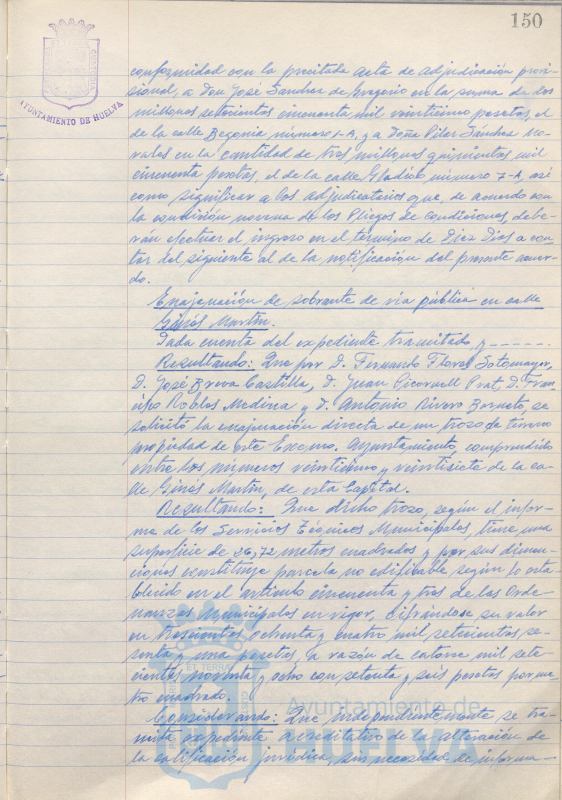 150
AYUNTAMIENTO DE HUELVA
conformidad con la precitada acta de adjudicación provi-
sional, a Don José Sanchez de Gregorio en la suma de dos
millones setecientas cincuenta mil veintiuna pesetas, el
de la calle Begonia número 1-A, y a Doña Pilar Sanchez No-
vales en la cantidad de tres millones quinientas mil
cincuenta pesetas, el de la calle Gladiolo número 7-A, así
como significar a los adjudicatarios que, de acuerdo con
la condición novena de los Pliegos de Condiciones, debe-
rán efectuar el ingreso en el término de Diez Días a con-
tar del siguiente al de la notificación del presente acuer-
do.
Enajenación de sobrante de vía pública en calle
Ginés Martín.
Dada cuenta del expediente tramitado, y - - - - - -
Resultando: Que por D. Fernando Flores Sotomayor,
D. José Breva Castilla, D. Juan Picornell Prat, D. Fran-
cisco Robles Medina y D. Antonio Rivero Borneto, se
solicitó la enajenación directa de un trozo de terreno
propiedad de este Excmo. Ayuntamiento, comprendido
entre los números veintiuno y veintisiete de la ca-
lle Ginés Martín, de esta Capital.
Resultando: Que dicho trozo, según el infor-
me de los Servicios Técnicos Municipales, tiene una
superficie de 26,72 metros cuadrados y por sus dimen-
ciones constituye parcela no edificable según lo esta-
blecido en el artículo cincuenta y tres de las Orde-
nanzas Municipales en vigor, cifrándose su valor
en trescientas ochenta y cuatro mil setecientas se-
senta y una pesetas, a razón de catorce mil sete-
cientas noventa y ocho con setenta y seis pesetas por me-
tro cuadrado.
Considerando: Que independientemente se tra-
mite expediente acreditativo de la alteración de
la calificación jurídica, sin necesidad de informa-
Ayuntamiento de
HUELVA